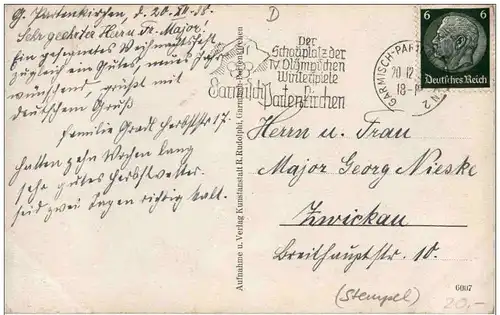 G. Partenkirchen, d. 20.XII.38.
Sehr geehrter Herr Major!
Ein gesegnetes Weihnachtsfest
zugleich ein Gutes, neues Jahr
wünschend, grüßt mit
deutschem Gruß
Familie Herbststr 17.
Hatten zehn Wochen lang
sehr gutes Herbstwetter
seid zwei Tagen richtig kalt.
Der
Schauplatz der
IV. Olympischen
Winterspiele
Garmisch Partenkirchen
D
6 6
Deutsches Reich
GARMISCH-PARTENKIRCHEN 2
20.12.
18-
Aufnahme u. Verlag Kunstanstalt R. Rudolphi, Garmisch-Partenkirchen
Herrn u. Frau
Major Georg Nieske
Zwickau
Breithauptstr. 10.
6007
(Stempel)
20.-